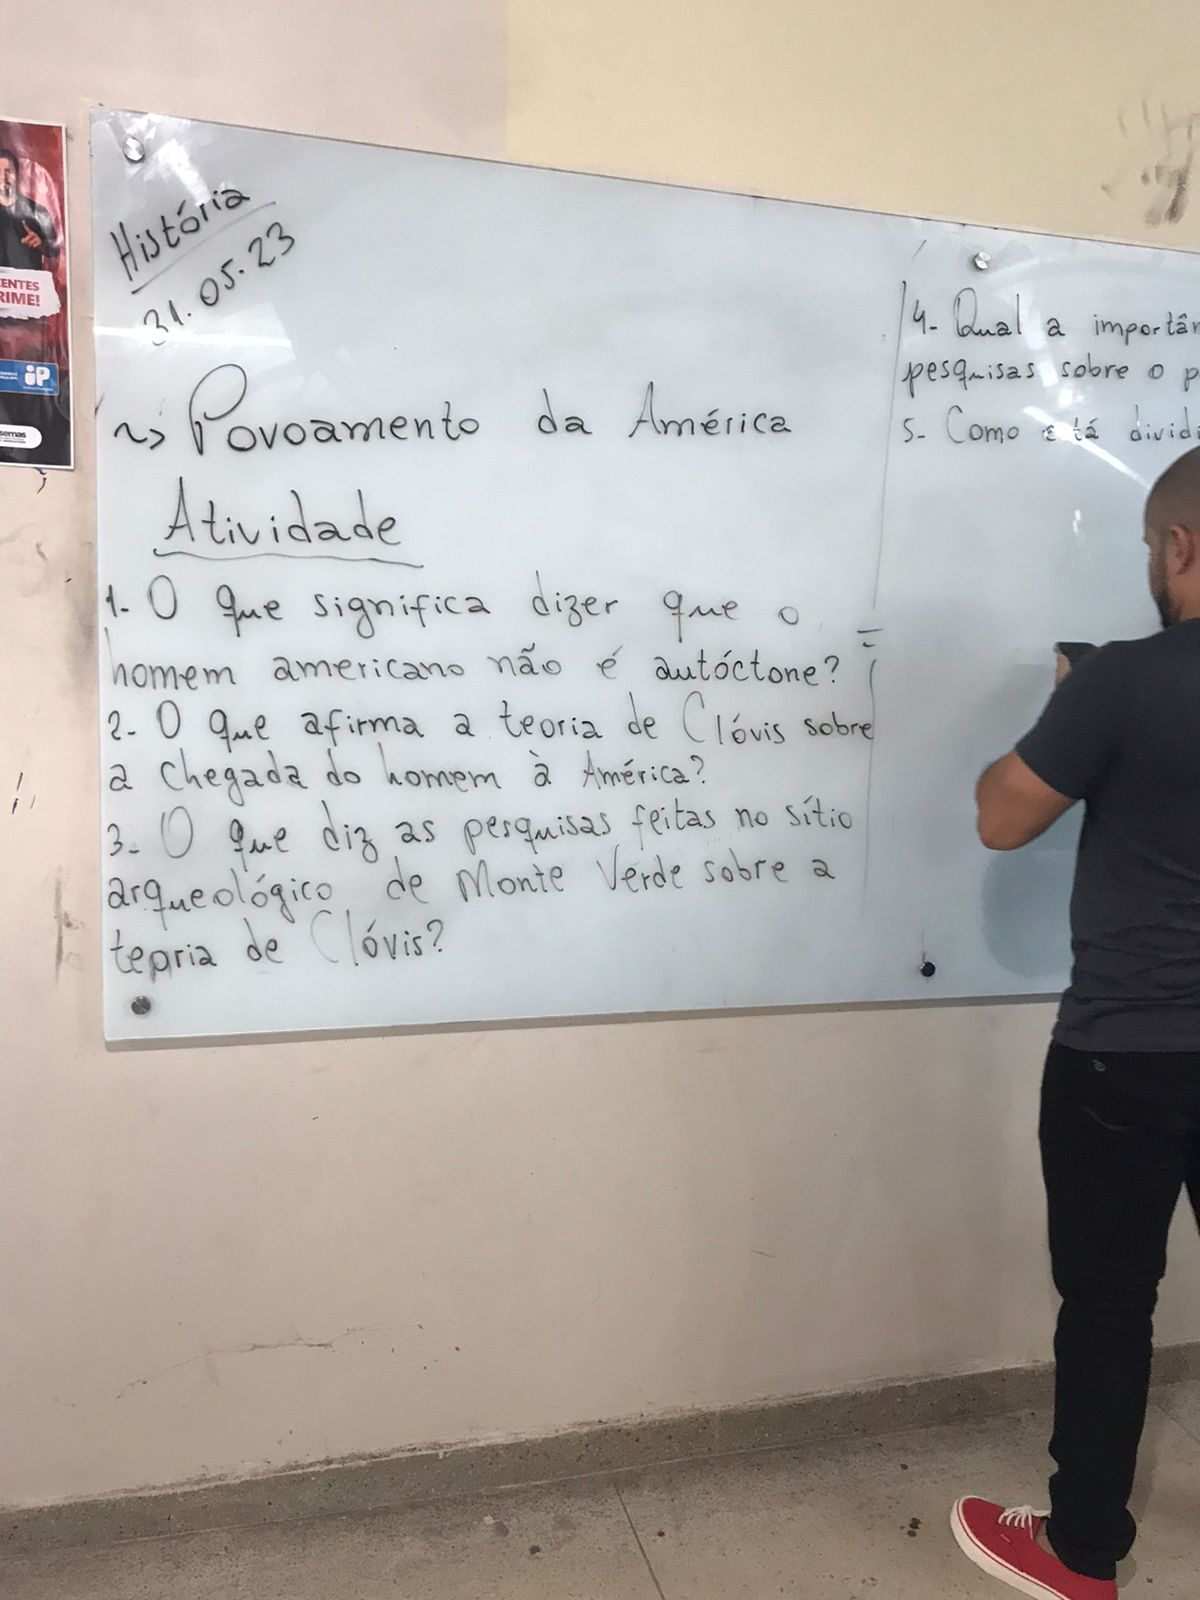 História
31.05.23
~> Povoamento da América
Atividade
1- O que significa dizer que o
homem americano não é autóctone?
2- O que afirma a teoria de Clóvis sobre
a chegada do homem à América?
3- O que diz as pesquisas feitas no sítio
arqueológico de Monte Verde sobre a
teoria de Clóvis?
4- Qual a importân
pesquisas sobre o p
5- Como está dividi
ENTES
RIME!
iP
semas